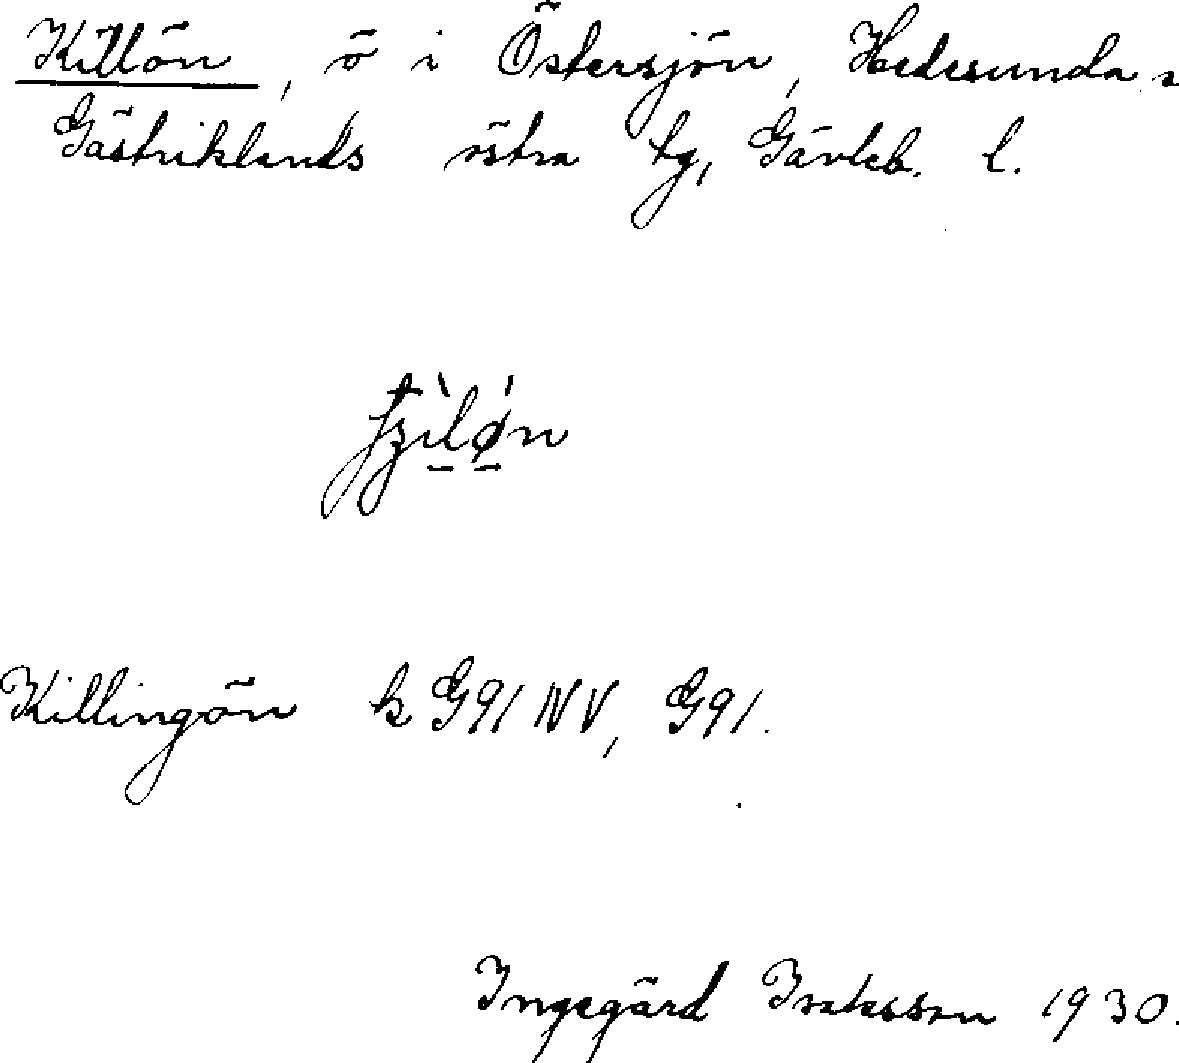 Killön, ö i Östersjön, Hedesunda s
Gästriklands östra tg, Gävleb. l.
Killingön k G91 NV, G91.
Ingegärd Isaksson 1930.